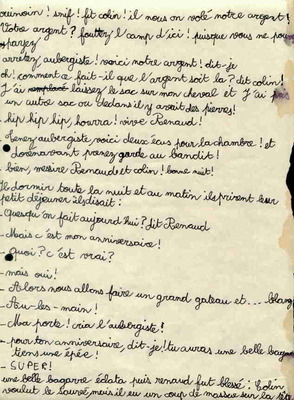 ouinoin! snif! fit colin! il nous on volé notre argent!
Votre argent? fouttez l'camp d'ici! puisque vous ne pouv
payez
arretez aubergiste! voici notre argent! dit-je
! comment ce fait-il que l'argent soit la? dit colin!
J'ai laissez le sac sur mon cheval et j'ai
un autre sac ou dedans il y avait des pierres!
- hip, hip, hip, hourra! vive Renaud!
- Tenez aubergiste voici deux écus pour la chambre! et
dorenavant prenez garde au bandit!
- bien, messire Renaud et colin! bonne nuit!
Ils dormir toute la nuit et au matin ils prirent leur
petit déjeuner ils disait:
- Quesqu'on fait aujourd'hui? dit Renaud
- Mais c'est mon anniversaire!
- Quoi? c'est vrai?
- mais oui!
- Alors nous allons faire un grand gateau et...
- Au-les-main!
- Ma porte! cria l'aubergiste!
- pour ton anniversaire, dit-je! tu auras une belle bagarre
tiens une épée!
- SUPER!
une belle bagarre éclata puis renaud fut blessé! Colin
voulut le sauvé, mais il eu un coup de masse sur la